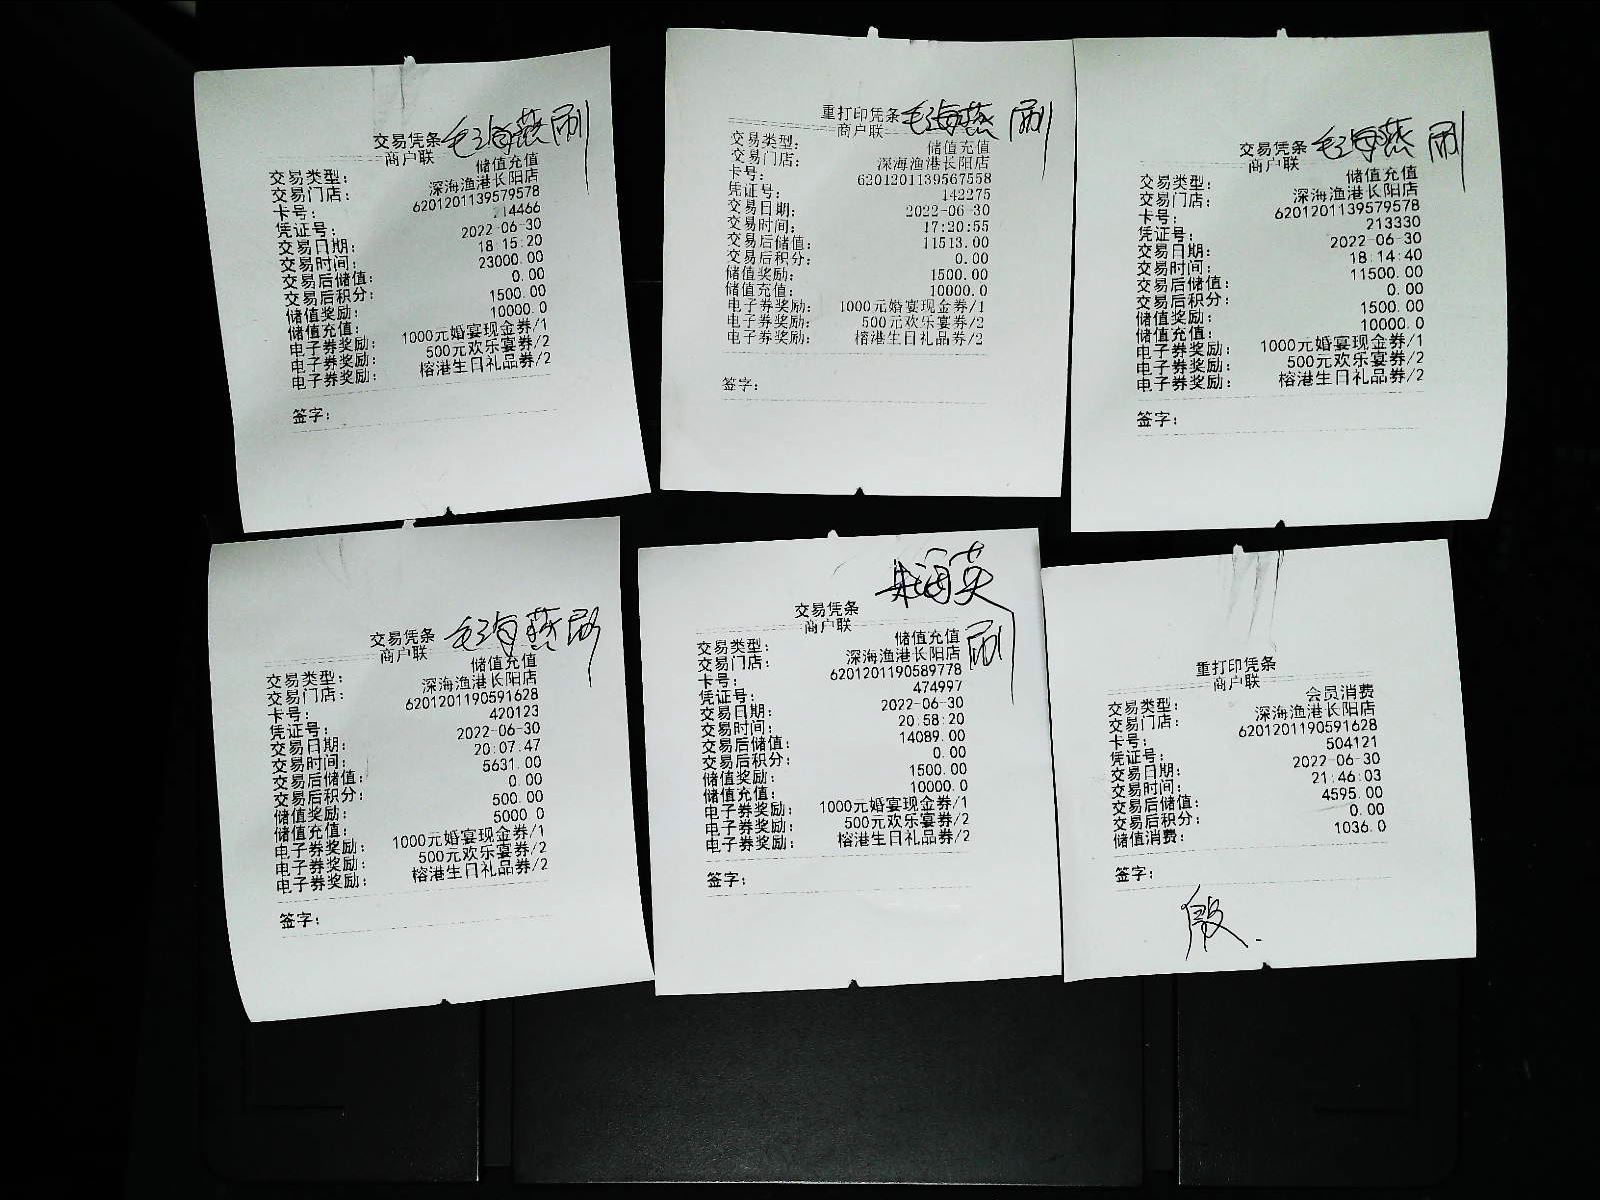 交易凭条 毛海燕刷
商户联
交易类型： 储值充值
交易门店： 深海渔港长阳店
卡号： 6201201139579578
凭证号： 214466
交易日期： 2022-06-30
交易时间： 18:15:20
交易后储值： 23000.00
交易后积分： 0.00
储值奖励： 1500.00
储值充值： 10000.0
电子券奖励： 1000元婚宴现金券/1
电子券奖励： 500元欢乐宴券/2
电子券奖励： 榕港生日礼品券/2
签字：
重打印凭条 毛海燕 刷
商户联
交易类型： 储值充值
交易门店： 深海渔港长阳店
卡号： 6201201139567558
凭证号： 142275
交易日期： 2022-06-30
交易时间： 17:20:55
交易后储值： 11513.00
交易后积分： 0.00
储值奖励： 1500.00
储值充值： 10000.0
电子券奖励： 1000元婚宴现金券/1
电子券奖励： 500元欢乐宴券/2
电子券奖励： 榕港生日礼品券/2
签字：
交易凭条 毛海燕 刷
商户联
交易类型： 储值充值
交易门店： 深海渔港长阳店
卡号： 6201201139579578
凭证号： 213330
交易日期： 2022-06-30
交易时间： 18:14:40
交易后储值： 11500.00
交易后积分： 0.00
储值奖励： 1500.00
储值充值： 10000.0
电子券奖励： 1000元婚宴现金券/1
电子券奖励： 500元欢乐宴券/2
电子券奖励： 榕港生日礼品券/2
签字：
交易凭条 毛海燕刷
商户联
交易类型： 储值充值
交易门店： 深海渔港长阳店
卡号： 6201201190591628
凭证号： 420123
交易日期： 2022-06-30
交易时间： 20:07:47
交易后储值： 5631.00
交易后积分： 0.00
储值奖励： 500.00
储值充值： 5000.0
电子券奖励： 1000元婚宴现金券/1
电子券奖励： 500元欢乐宴券/2
电子券奖励： 榕港生日礼品券/2
签字：
朱海英
交易凭条
商户联
刷
交易类型： 储值充值
交易门店： 深海渔港长阳店
卡号： 6201201190589778
凭证号： 474997
交易日期： 2022-06-30
交易时间： 20:58:20
交易后储值： 14089.00
交易后积分： 0.00
储值奖励： 1500.00
储值充值： 10000.0
电子券奖励： 1000元婚宴现金券/1
电子券奖励： 500元欢乐宴券/2
电子券奖励： 榕港生日礼品券/2
签字：
重打印凭条
商户联
交易类型： 会员消费
交易门店： 深海渔港长阳店
卡号： 6201201190591628
凭证号： 504121
交易日期： 2022-06-30
交易时间： 21:46:03
交易后储值： 4595.00
交易后积分： 0.00
储值消费： 1036.0
签字：
殷.